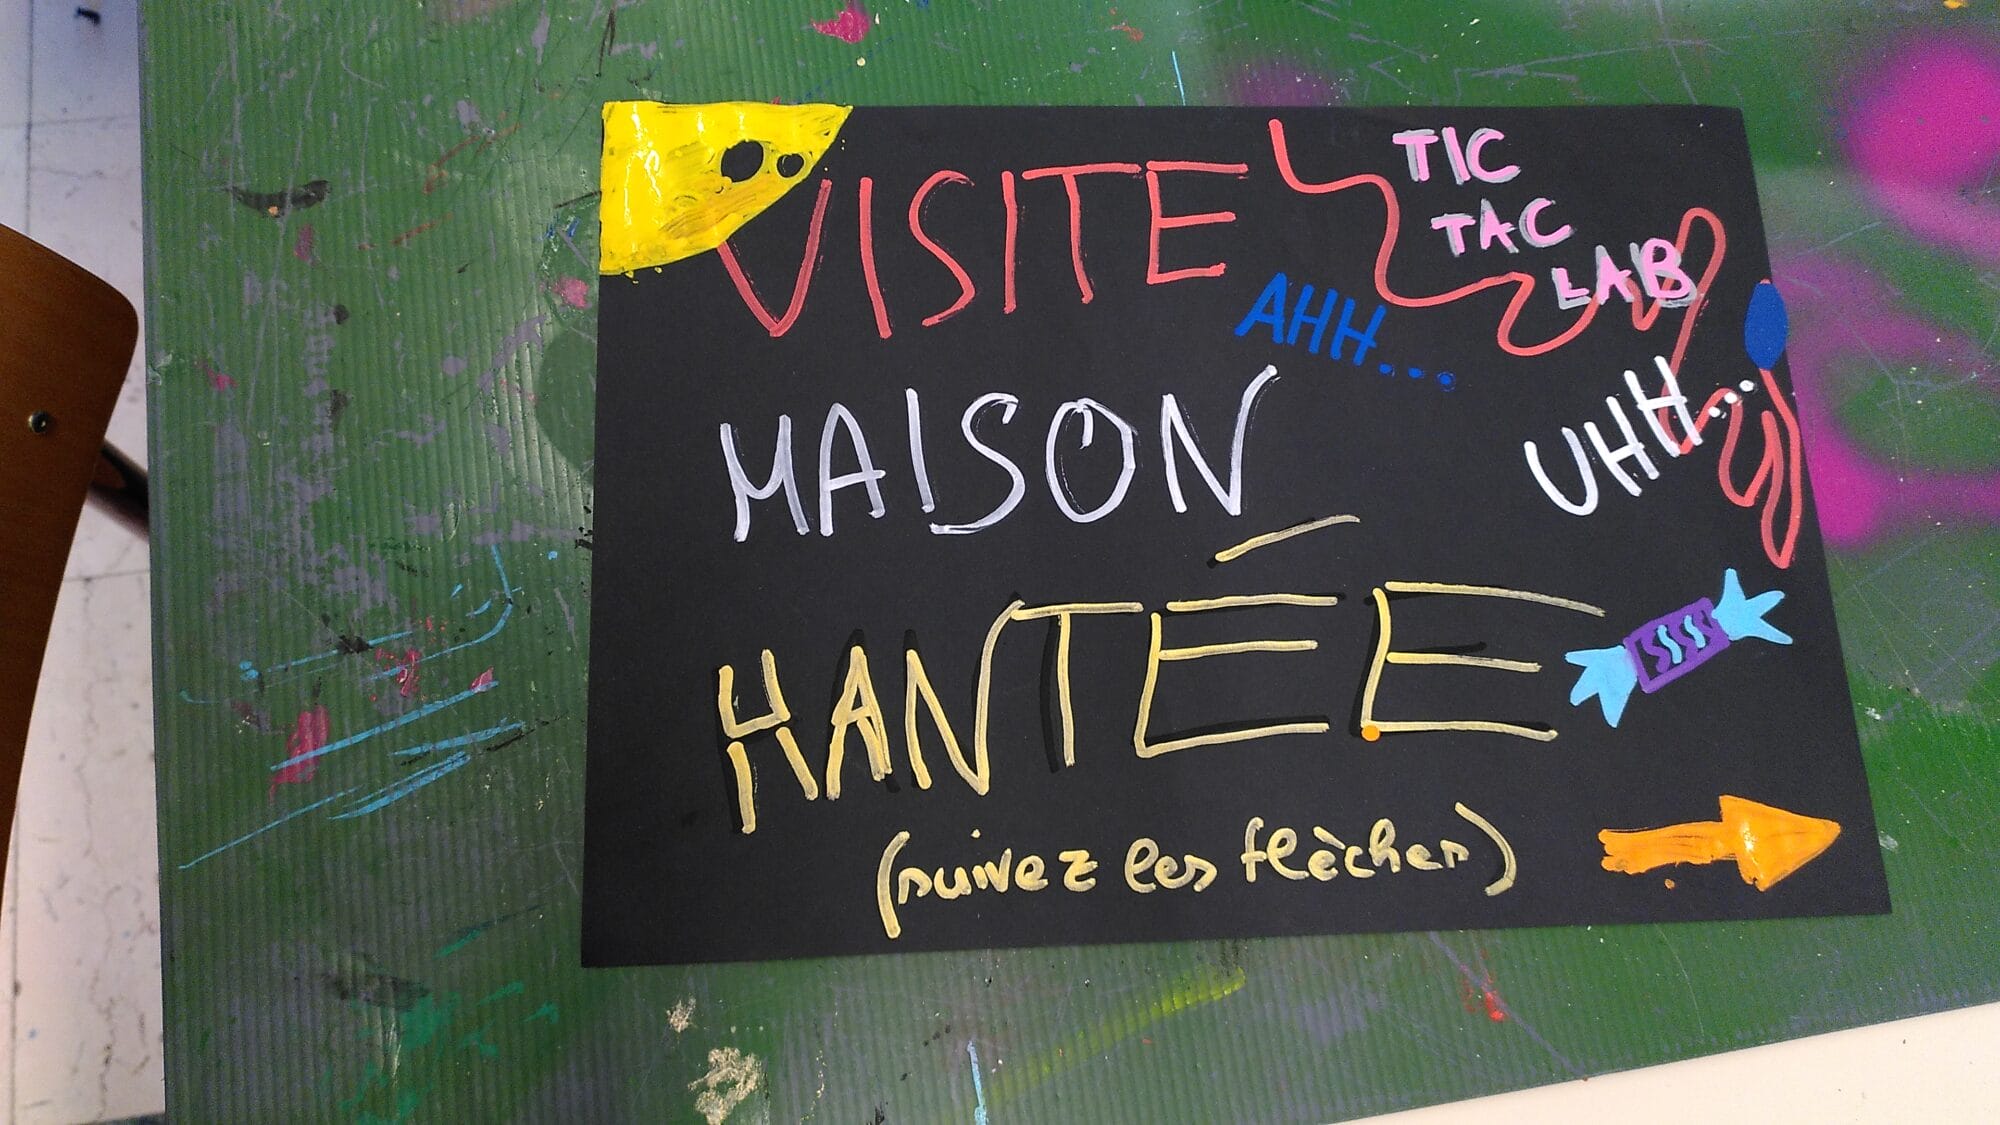 VISITE
TIC
TAC
LAB
AHH...
UHH...
MAISON
HANTÉE
(suivez les flèches)